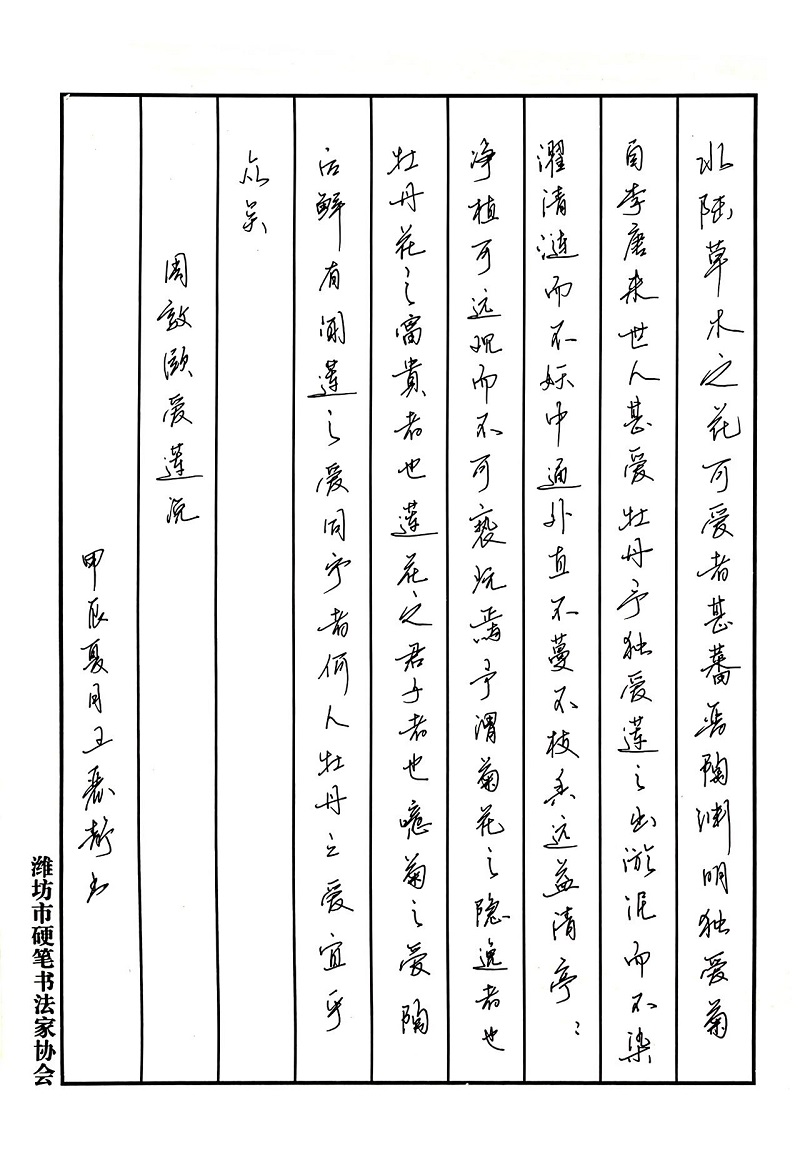 水陆草木之花可爱者甚蕃晋陶渊明独爱菊
自李唐来世人甚爱牡丹予独爱莲之出淤泥而不染
濯清涟而不妖中通外直不蔓不枝香远益清亭〻
净植可远观而不可亵玩焉予谓菊花之隐逸者也
牡丹花之富贵者也莲花之君子者也噫菊之爱陶
后鲜有闻莲之爱同予者何人牡丹之爱宜乎
众矣
周敦颐爱莲说
甲辰夏月王磊静书
潍坊市硬笔书法家协会